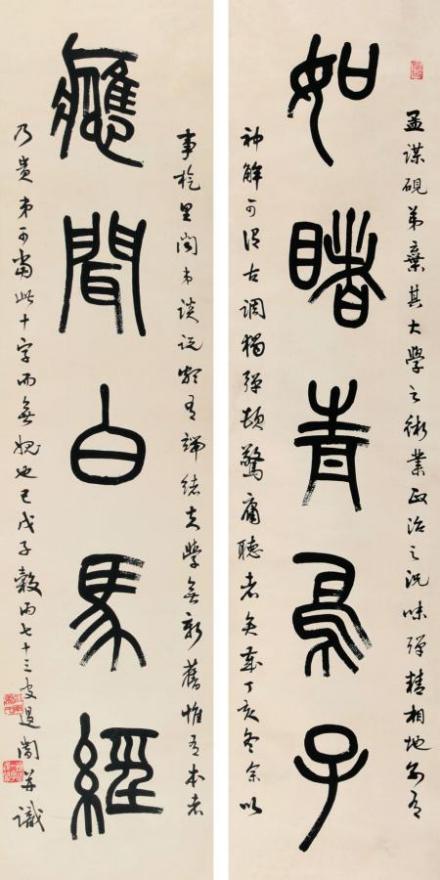 孟謀硯弟棄其大學之術業政治之況味殫精相地有
如睹青烏子
神解可謂古調獨彈頓驚庸聽者矣歲丁亥冬余以
事旋里聞弟談說頗有端緒夫學無新舊惟有本者
應聞白馬經
乃貴弟可當此十字而無愧也已戊子穀雨七十三叟并識